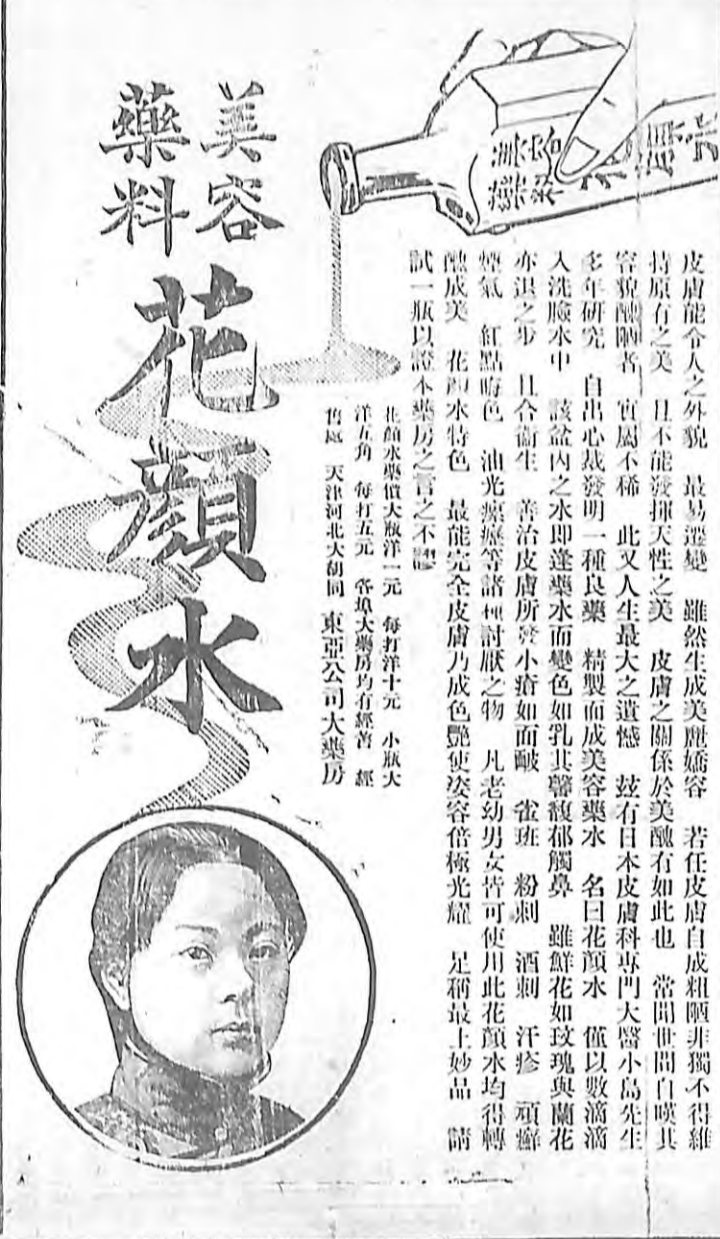 皮膚能令人之外貌　最易遷變　雖然生成美麗嬌容　若任皮膚自成粗陋非獨不得維
持原有之美　且不能發揮天性之美　皮膚之關係於美醜有如此也　常聞世間自嘆其
容貌醜陋者　實屬不稀　此又人生最大之遺憾　茲有日本皮膚科專門大醫小島先生
多年研究　自出心裁發明一種良藥　精製而成美容藥水　名曰花顏水　僅以數滴滴
入洗臉水中　該盆內之水即逢藥水而變色如乳其馨馥郁觸鼻　雖鮮花如玫瑰與蘭花
亦退之步　且合衞生　善治皮膚所發小瘡如面皶　雀班　粉刺　酒刺　汗疹　頑癬
煙氣　紅點晦色　油光等諸種討厭之物　凡老幼男女皆可使用此花顏水均得轉
醜成美　花顏水特色　最能完全皮膚乃成色艷使姿容倍極光耀　足稱最上妙品　請
試一瓶以證本藥房之言之不謬
花顏水藥價大瓶洋一元　每打洋十元　小瓶大
洋五角　每打五元　各埠大藥房均有經售　經
售處　天津河北大胡同　東亞公司大藥房
美容
藥料
花顏水